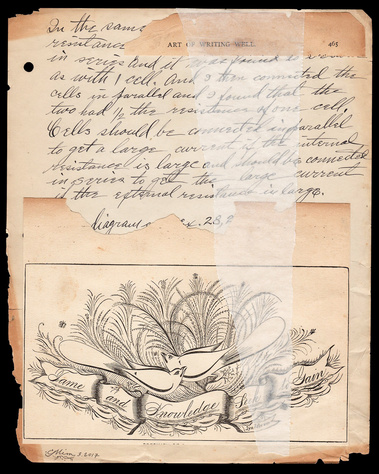 In the same
ART OF WRITING WELL. 465
resistance
in series and it was found
as with 1 cell. And I then connected the
cells in parallel and I found that the
two had 1/2 the resistance of one cell.
Cells should be connected in parallel
to get a large current if the internal
resistance is large and should be connected
in series to get the large current
if the external resistance is large.
Diagram Ex. 28,2
Fame and Knowledge Gain